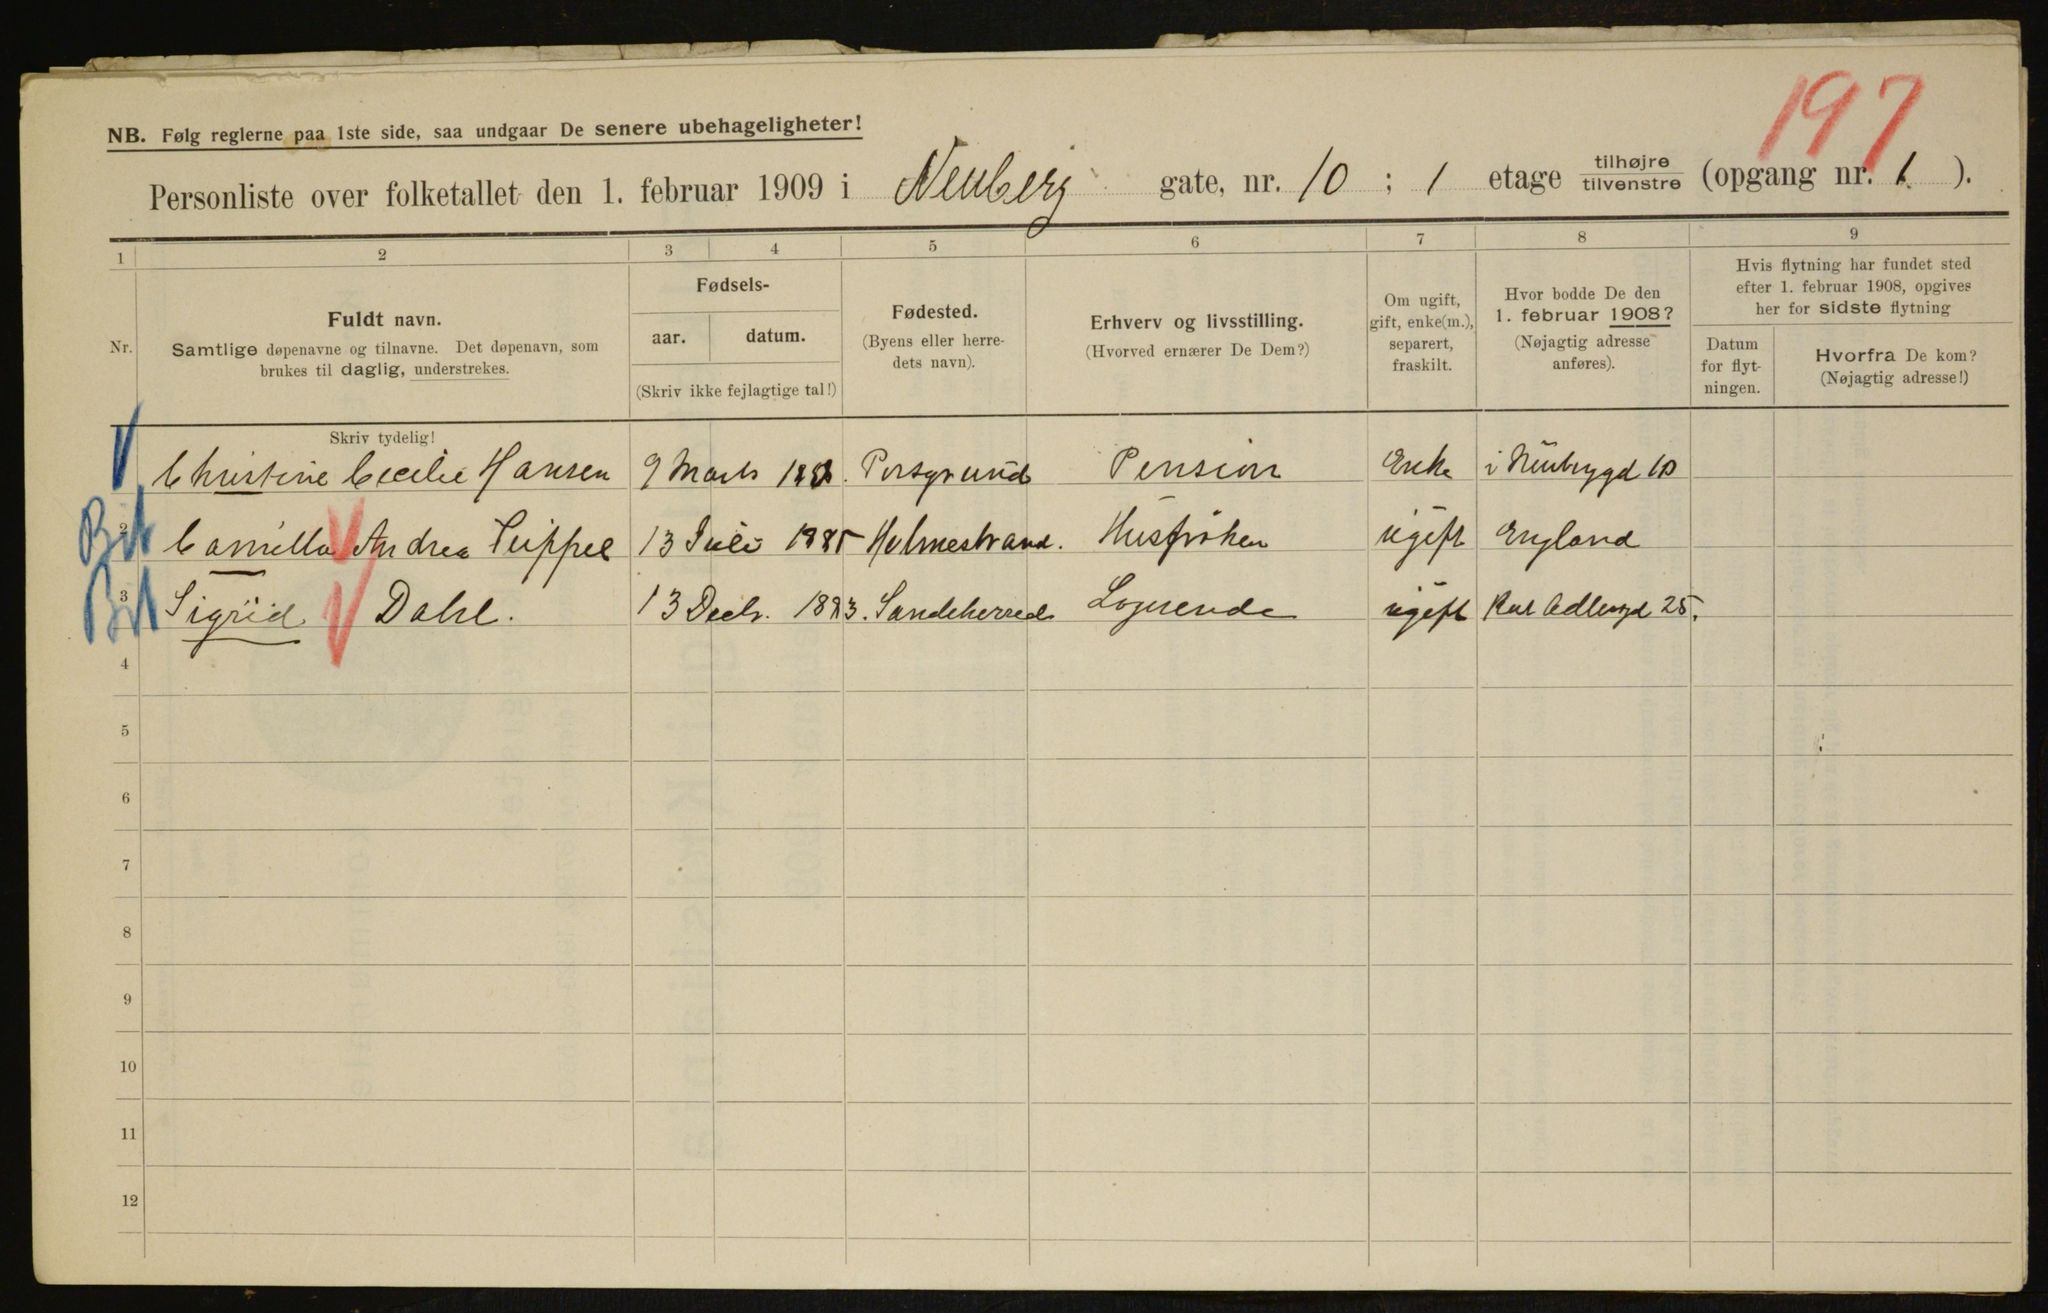 197
NB. Følg reglerne paa 1ste side, saa undgaar De senere ubehageligheter!
Personliste over folketallet den 1. februar 1909 i Neuberg gate, nr. 10 ; 1 etage tilhøjre tilvenstre (opgang nr. 1 ).
1 2 3 4 5 6 7 8 9
Nr.
Fuldt navn.
Samtlige døpenavne og tilnavne. Det døpenavn, som
brukes til daglig, understrekes.
Skriv tydelig!
Fødsels-
aar. datum.
(Skriv ikke fejlagtige tal!)
Fødested.
(Byens eller herre-
dets navn).
Erhverv og livsstilling.
(Hvorved ernærer De Dem?)
Om ugift,
gift, enke(m.),
separert,
fraskilt.
Hvor bodde De den
1. februar 1908?
(Nøjagtig adresse
anføres).
Hvis flytning har fundet sted
efter 1. februar 1908, opgives
her for sidste flytning
Datum
for flyt-
ningen.
Hvorfra De kom?
(Nøjagtig adresse!)
Christine Cecilie Hansen 9 Marts Porsgrund Pension Enke i 10
Bit 2 Camilla Andrea 13 Juli 1885 Holmestrand. Husfrøken ugift England
Bit 3 Sigrid Dahl. 13 Decb. 1883. Sandeherred Logerende ugift 25.
4
5
6
7
8
9
10
11
12